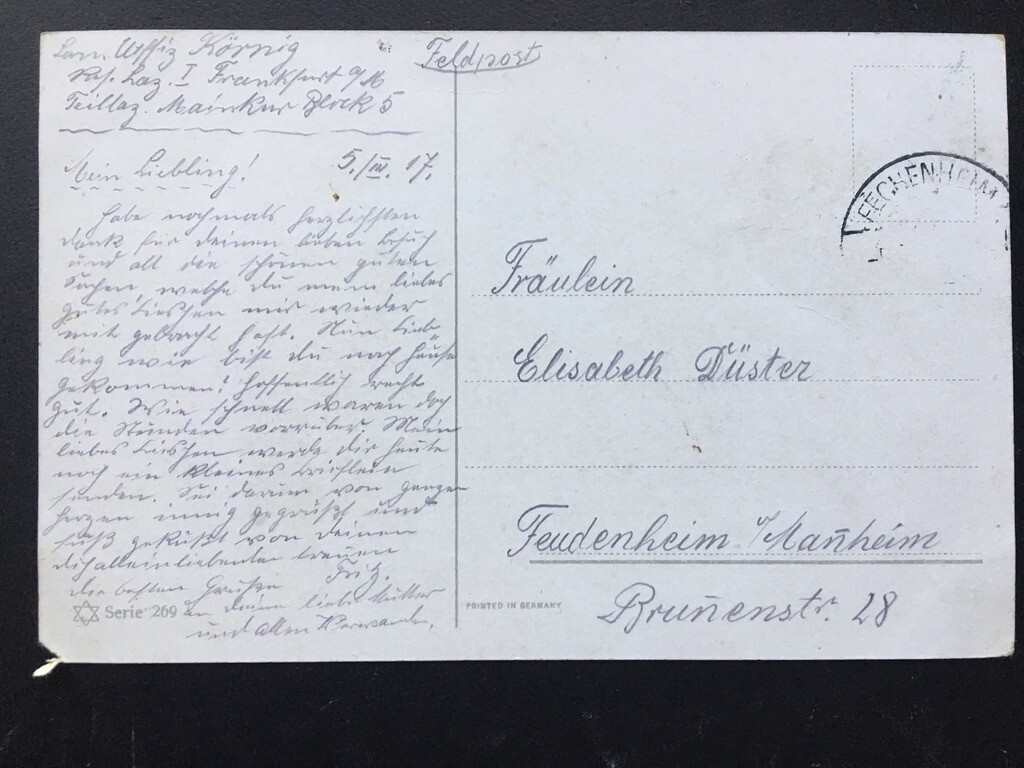 San. Uffiz Körnig
Res. Laz. I Frankfurt a/M
Teillaz. Mainkur Block 5
Feldpost
Mein Liebling! 5./III. 17.
Habe nochmals herzlichsten
Dank für deinen lieben Besuch
und all die schönen guten
Sachen, welche du mein liebes
gutes Lieschen mir wieder
mit gebracht hast. Nun Lieb-
ling wie bist du nach Hause
gekommen? Hoffentlich recht
gut. Wie schnell waren doch
die Stunden vorrüber. Mein
liebes Lieschen werde dir heute
noch ein kleines Brieflein
senden. Sei darum von ganzen
Herzen innig gegrüßt und
süß geküßt von deinen
dichalleinliebenden treuen
Fritz.
die besten Grüße
an deine liebe Mutter
und allen Verwanden.
Serie 269
PRINTED IN GERMANY
FECHENHEIM
Fräulein
Elisabeth Düster
Feudenheim /Man̄heim
Brun̄enstr. 28